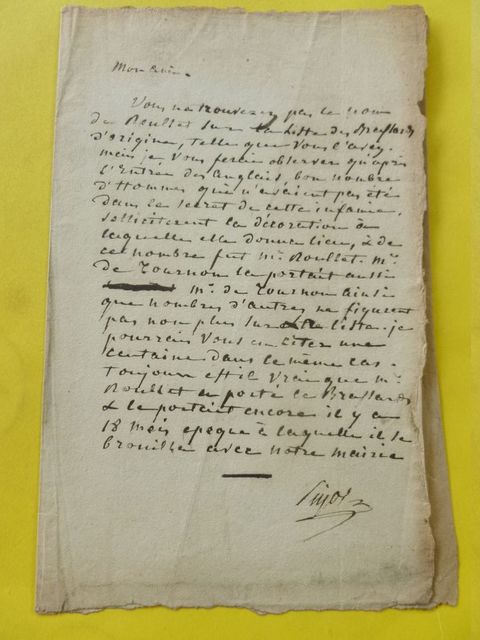 Mon ami.
Vous ne trouverez pas le nom
de Roullet sur la Liste des Brassards
d'origine, telle que vous l'avez.
mais je vous ferai observer qu'après
l'Entrée des anglais, bon nombre
d'Hommes qui n'avaient pas été
dans le secret de cette infamie,
solliciterent la décoration à
laquelle elle donna lieu, & de
ce nombre fut Mr Roullet. Mr.
de Tournon la portait aussi
Mr. de Tournon ainsi
que nombres d'autres ne figurent
pas non plus sur liste. je
pourrais vous en citer une
centaine dans le même cas.
toujours est il vrai que Mr.
Roullet a porté le Brassards
& le portait encore il y a
18 mois epoque à laquelle il se
brouilla avec notre mairie